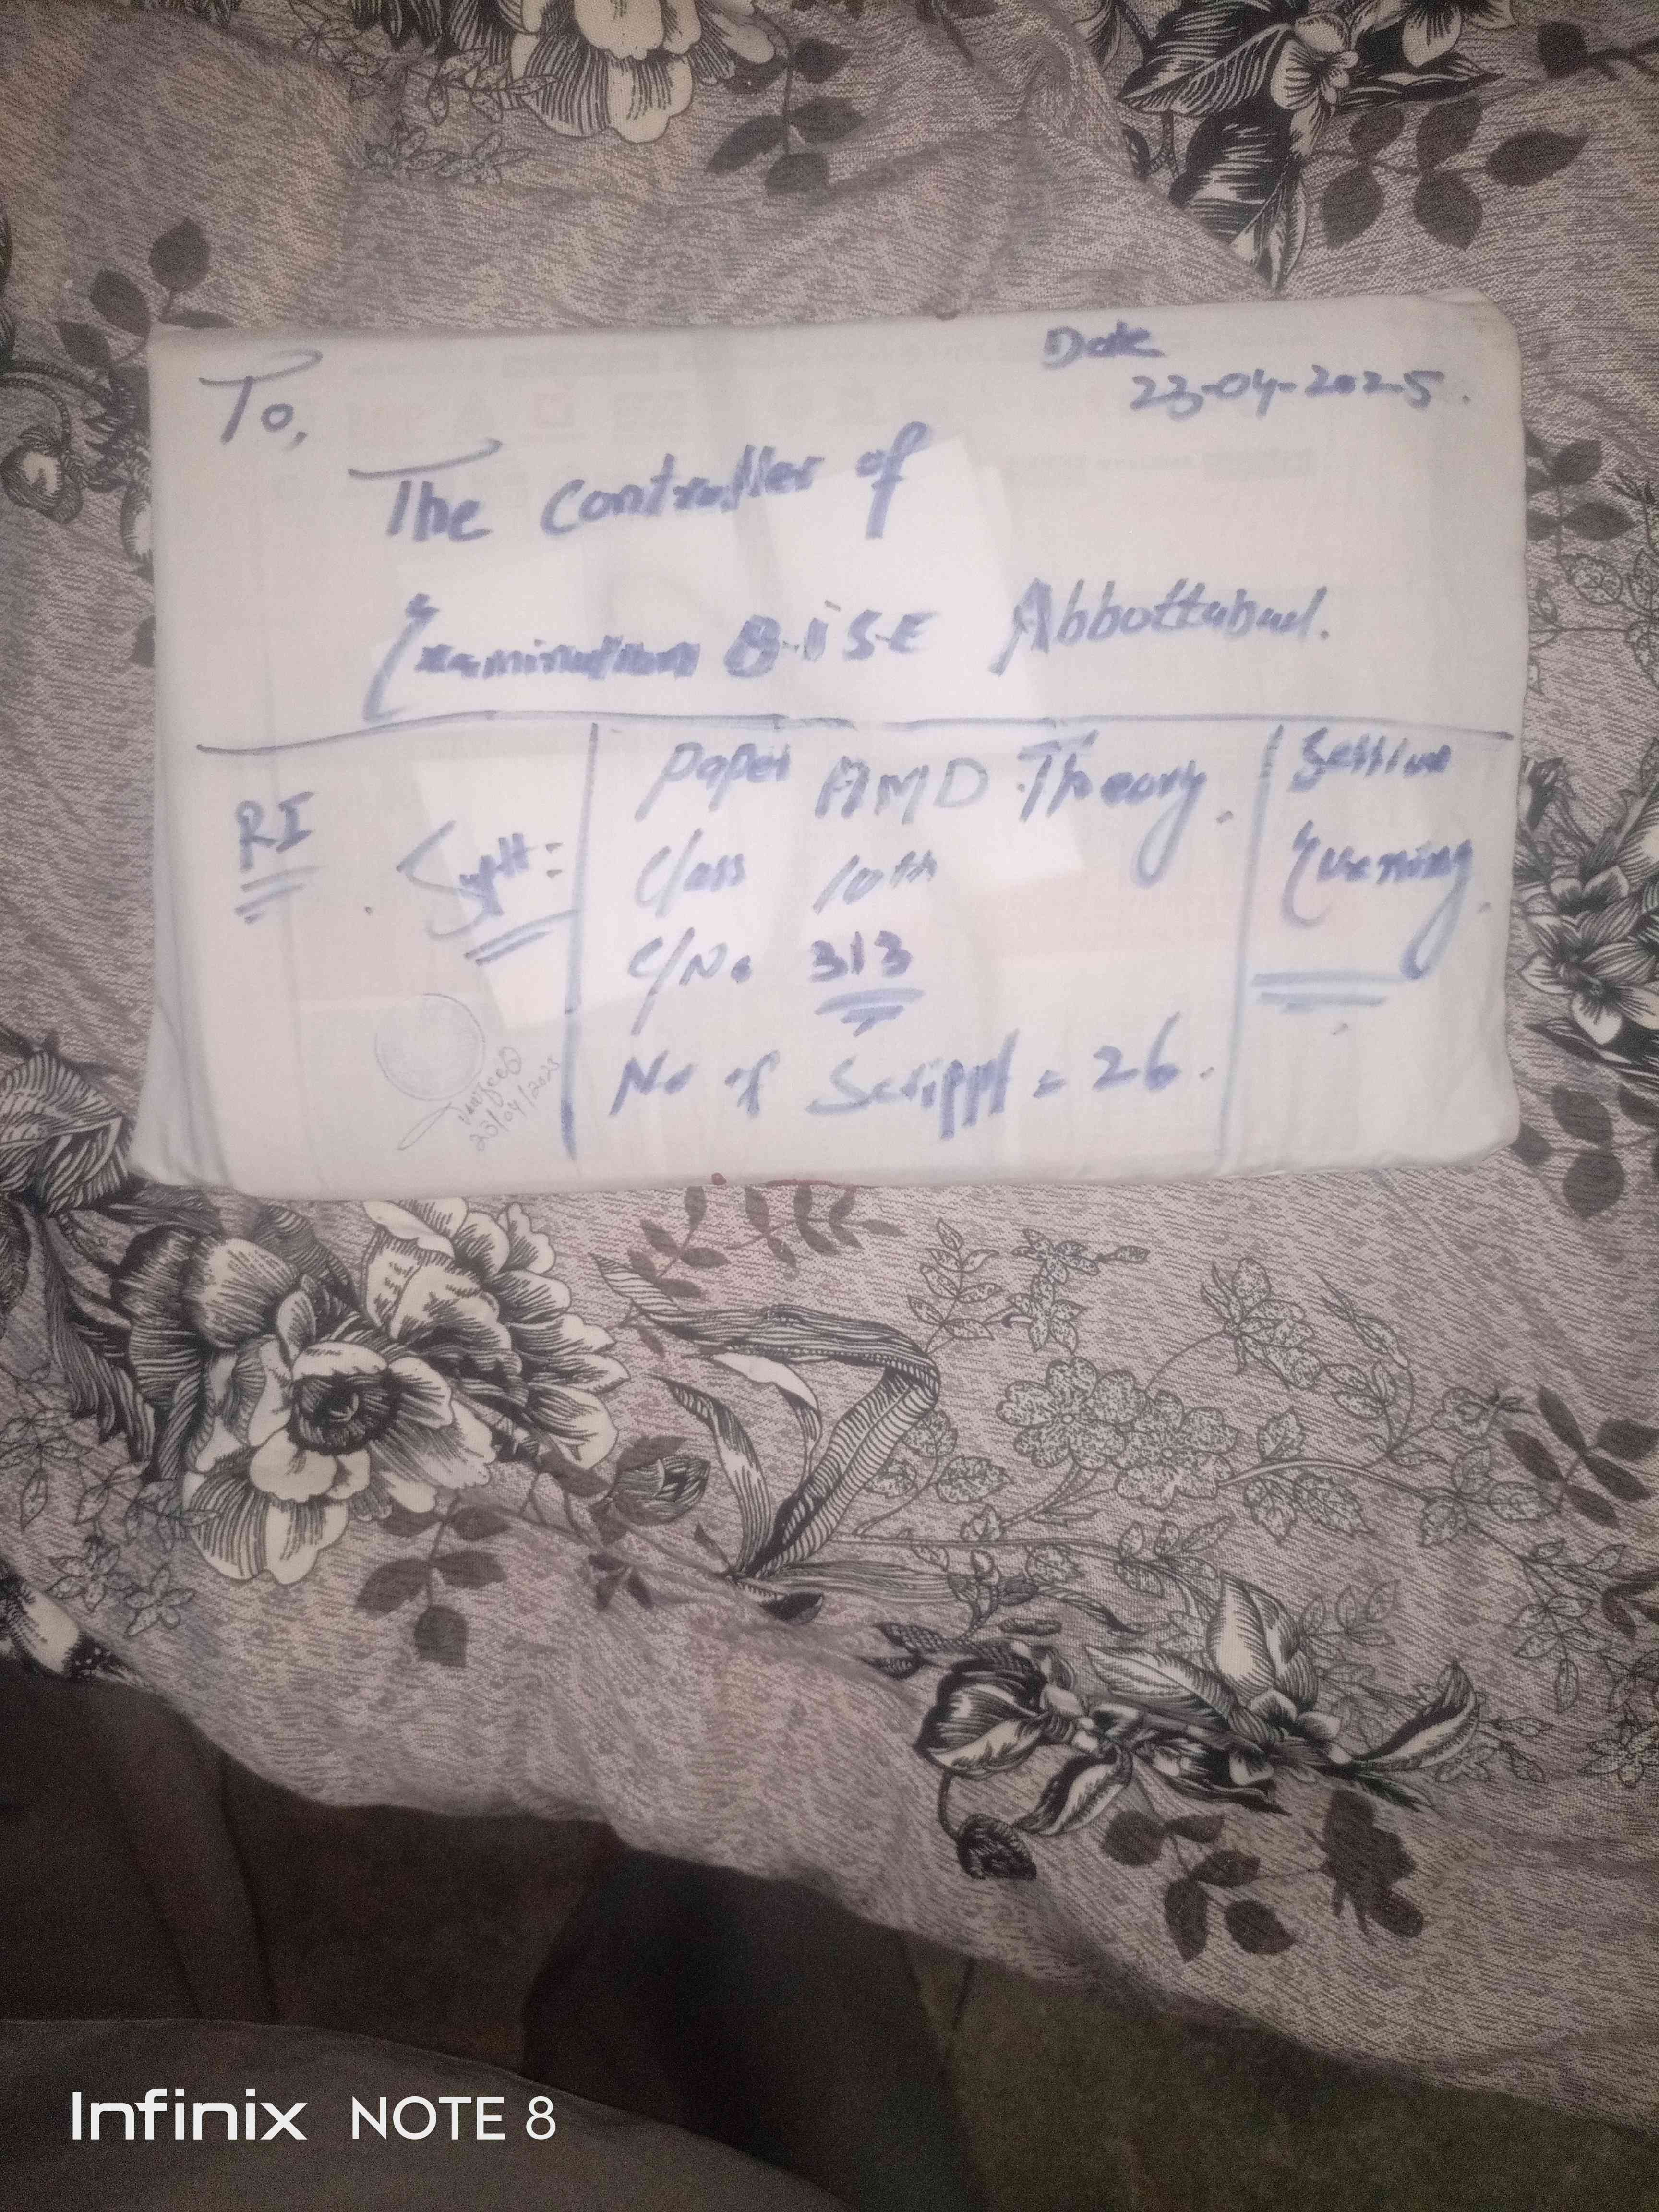 To,
Date
23-04-2025.
The Controller of
Examination B-iSE Abbottabad.
RI
Suptt:
Paper AMD Theory.
Class 10th
C/No 313
No of Scrippt = 26.
Session
Evening.
23/04/2025
Infinix NOTE 8